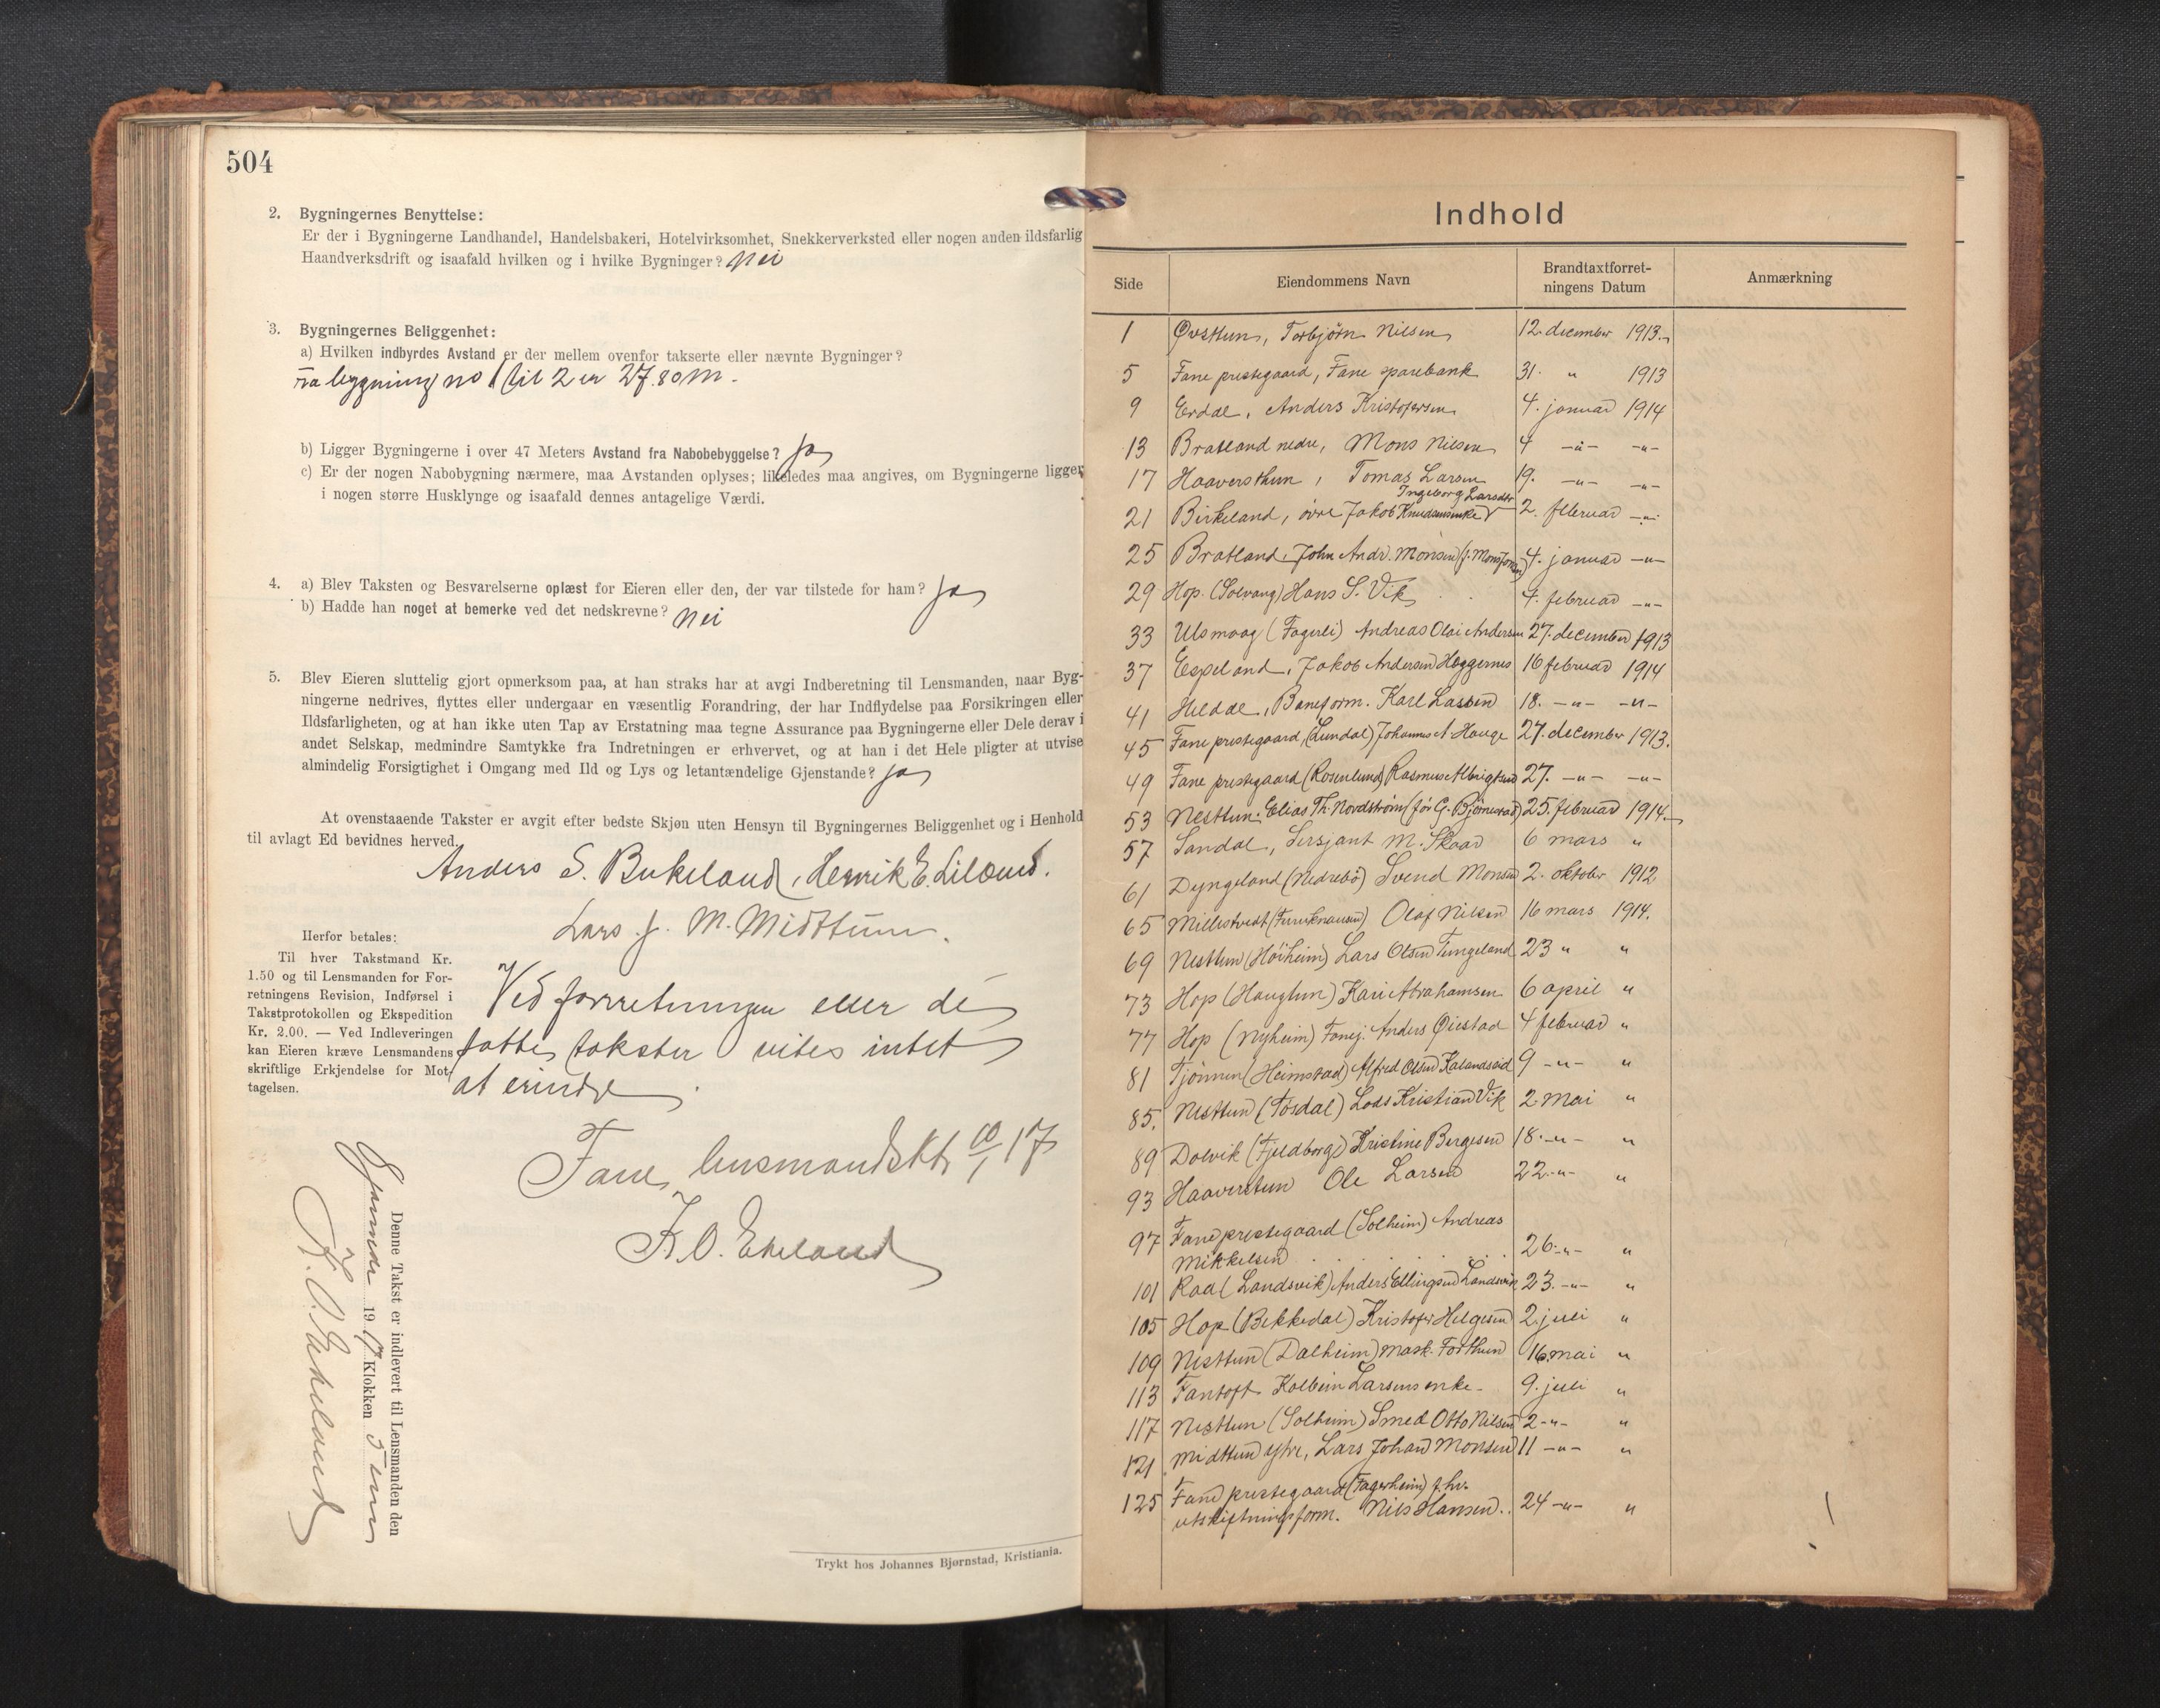 504
2. Bygningernes Benyttelse:
Er der i Bygningerne Landhandel, Handelsbakeri, Hotelvirksomhet, Snekkerverksted eller nogen anden ildsfarlig
Haandverksdrift og isaafald hvilken og i hvilke Bygninger? Nei
3. Bygningernes Beliggenhet:
a) Hvilken indbyrdes Avstand er der mellem ovenfor takserte eller nævnte Bygninger?
Fra bygning no 1 til 2 er 27.80 m.
b) Ligger Bygningerne i over 47 Meters Avstand fra Nabobebyggelse? Ja
c) Er der nogen Nabobygning nærmere, maa Avstanden oplyses; likeledes maa angives, om Bygningerne ligger
i nogen større Husklynge og isaafald dennes antagelige Værdi.
4. a) Blev Taksten og Besvarelserne oplæst for Eieren eller den, der var tilstede for ham? Ja
b) Hadde han noget at bemerke ved det nedskrevne? Nei
5. Blev Eieren sluttelig gjort opmerksom paa, at han straks har at avgi Indberetning til Lensmanden, naar Byg-
ningerne nedrives, flyttes eller undergaar en væsentlig Forandring, der har Indflydelse paa Forsikringen eller
Ildsfarligheten, og at han ikke uten Tap av Erstatning maa tegne Assurance paa Bygningerne eller Dele derav i
andet Selskap, medmindre Samtykke fra Indretningen er erhvervet, og at han i det Hele pligter at utvise
almindelig Forsigtighet i Omgang med Ild og Lys og letantændelige Gjenstande? Ja
At ovenstaaende Takster er avgit efter bedste Skjøn uten Hensyn til Bygningernes Beliggenhet og i Henhold
til avlagt Ed bevidnes herved.
Anders S. Birkeland, Henrik E. Liland.
Lars J. M. Midttun.
Herfor betales:
Til hver Takstmand Kr.
1.50 og til Lensmanden for For-
retningens Revision, Indførsel i
Takstprotokollen og Ekspedition
Kr. 2.00. — Ved Indleveringen
kan Eieren kræve Lensmandens
skriftlige Erkjendelse for Mot-
tagelsen.
Ved forretningen eller de
satte takster vites intet
at erindre.
Fane lensmandskt. 10/1 17
K. O. Ekeland
Denne Takst er indlevert til Lensmanden den
9 januar 1917 Klokken 5 em
K. O. Ekeland
Trykt hos Johannes Bjørnstad, Kristiania.
Indhold
Side Eiendommens Navn Brandtaxtforret- Anmærkning
ningens Datum
1 Øvsttun, Torbjörn Nilsen 12. december 1913.
5 Fane prestegaard, Fane sparebank 31. " 1913
9 Erdal, Anders Kristofersen 4. januar 1914
13 Bratland nedre, Mons Nilsen 4 -"- -"-
17 Haaversthun, Tomas Larsen 19. -"- -"-
Ingeborg Larsdtr
21 Birkeland, övre Jakob Knudsensenke 2. februar -"-
25 Bratland, John Andr. Monsen (f. Mons Jonsen) 4. januar -"-
29 Hop (Solvang) Hans S. Vik 4. februar -"-
33 Ulsmaag (Fagerli) Andreas Olai Andersen 27. december 1913
37 Espeland, Jakob Andersen Hæggernes 16 februar 1914
41 Heldal, Baneform. Karl Lassen 18. -"- -"-
45 Fane prestegaard, (Lundal) Johannes N. Hauge 27. december 1913.
49 Fane prestegaard (Rosenlund) Rasmus Albrigtsen 27. -"- -"-
53 Nesttun. Elias Th. Nordström (för G. Björnerød) 25. februar 1914.
57 Sandal, Sersjant M. Skaar 6 mars "
61 Dyngeland (Nedrebö) Svend Monsen 2. oktober 1912
65 Olaf Nilsen 16 mars 1914.
69 Nesttun (Höiheim) Lars Olsen Tungeland 23 " "
73 Hop (Haugtun) Kari Abrahamsen 6 april "
77 Hop (Nyheim) Fanej. Anders Øiestad 4 februar "
81 Tjönnen (Heimstad) Alfred Olsen Kalandseid 9 -"- "
85. Nesttun (Fosdal) Lods Kristian Vik 2 mai "
89 Dolvik (Fjeldborg) Kristine Bergesen 18. -"- "
93 Haaversttun Ole Larsen 22. -"- "
97 Fane prestegaard (Solheim) Andreas
Mikkelsen 26. -"- "
101 Raa (Landsvik) Anders Ellingsen Landsvik 23. -"- "
105 Hop (Bekkedal) Kristofer Helgesen 2. juli "
109 Nesttun (Dalheim) Mask. Forthun 16. mai "
113 Fantoft Kolbein Larsens enke 9. juli "
117 Nesttun (Solheim) Smed Otto Nilsen 2 -"- "
121 Midttun ytre, Lars Johan Monsen 11 -"- "
125 Fane prestegaard (Fagerheim) f. hv.
utskiftningsform. Nils Hansen 24 -"- "